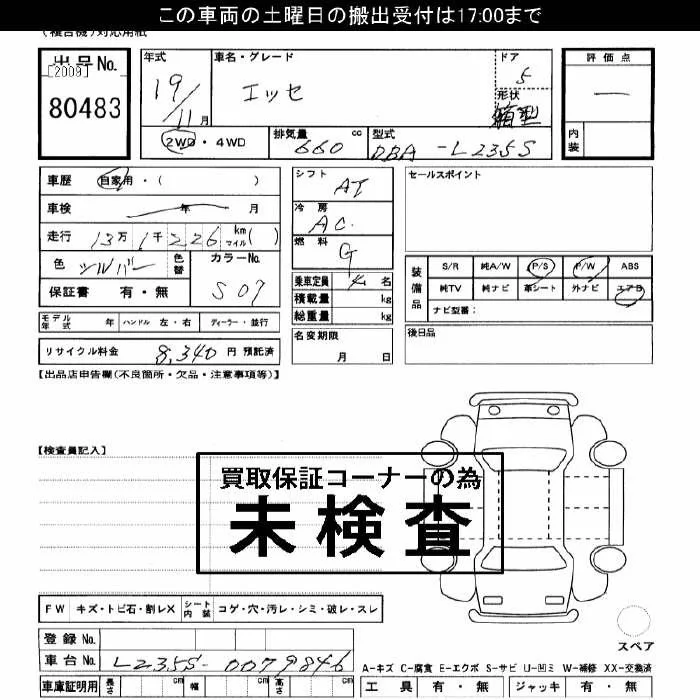 この車両の土曜日の搬出受付は17:00まで
(複合機)対応用紙
出品No.
[2009]
80483
年式
19/11月
車名・グレード
エッセ
ドア
5
形状
箱型
評価点
―
内装
2WD・4WD
排気量 660 cc
型式 DBA-L235S
車歴 自家用・( )
車検 年 月
走行 13万1千226 km マイル( )
色 シルバー
色替
カラーNo.
S07
保証書 有・無
シフト
AT
冷房
AC
燃料
G
乗車定員 4 名
積載量 kg
総重量 kg
名変期限
月 日
セールスポイント
装備品
S/R 純A/W P/S P/W ABS
純TV 純ナビ 革シート 外ナビ エアB
ナビ型番:
後日品
モデル年式 年 ハンドル 左・右 ディーラー・並行
リサイクル料金 8,340 円 預託済
【出品店申告欄(不良箇所・欠品・注意事項等)】
【検査員記入】
買取保証コーナーの為
未検査
FW キズ・トビ石・割レX シート内装 コゲ・穴・汚レ・シミ・破レ・スレ
登録No.
車台No. L235S-0079846
車庫証明用 長さ cm 幅 cm 高さ cm
スペア
A-キズ C-腐食 E-エクボ S-サビ U-凹ミ W-補修 XX-交換済
工具 有・無 ジャッキ 有・無